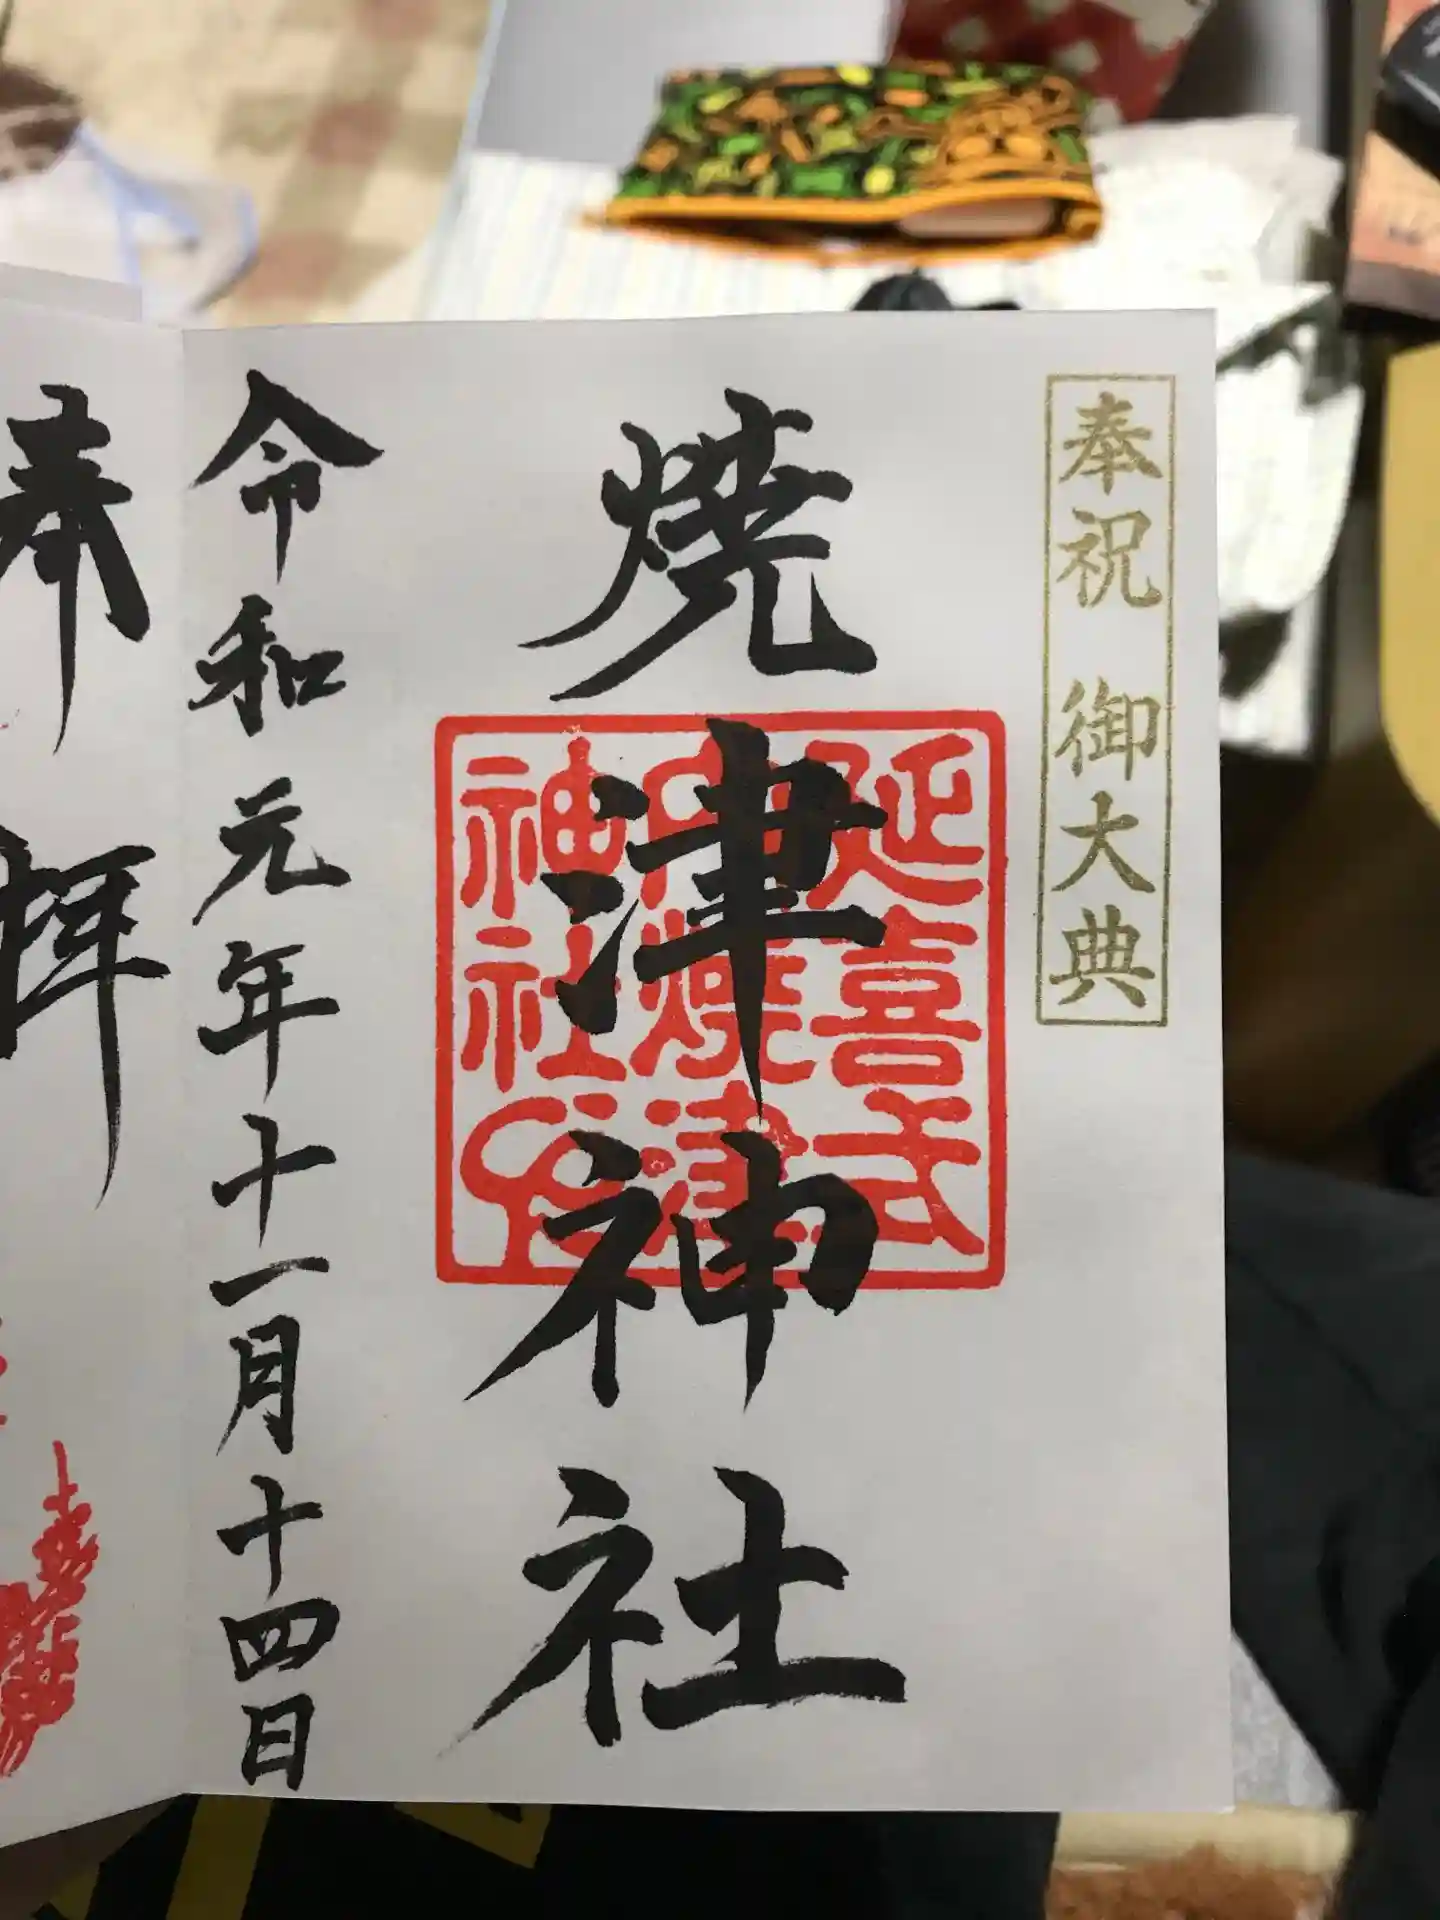 奉祝 御大典
焼津神社
延喜式
内焼津
神社印
令和元年十一月十四日
奉拝